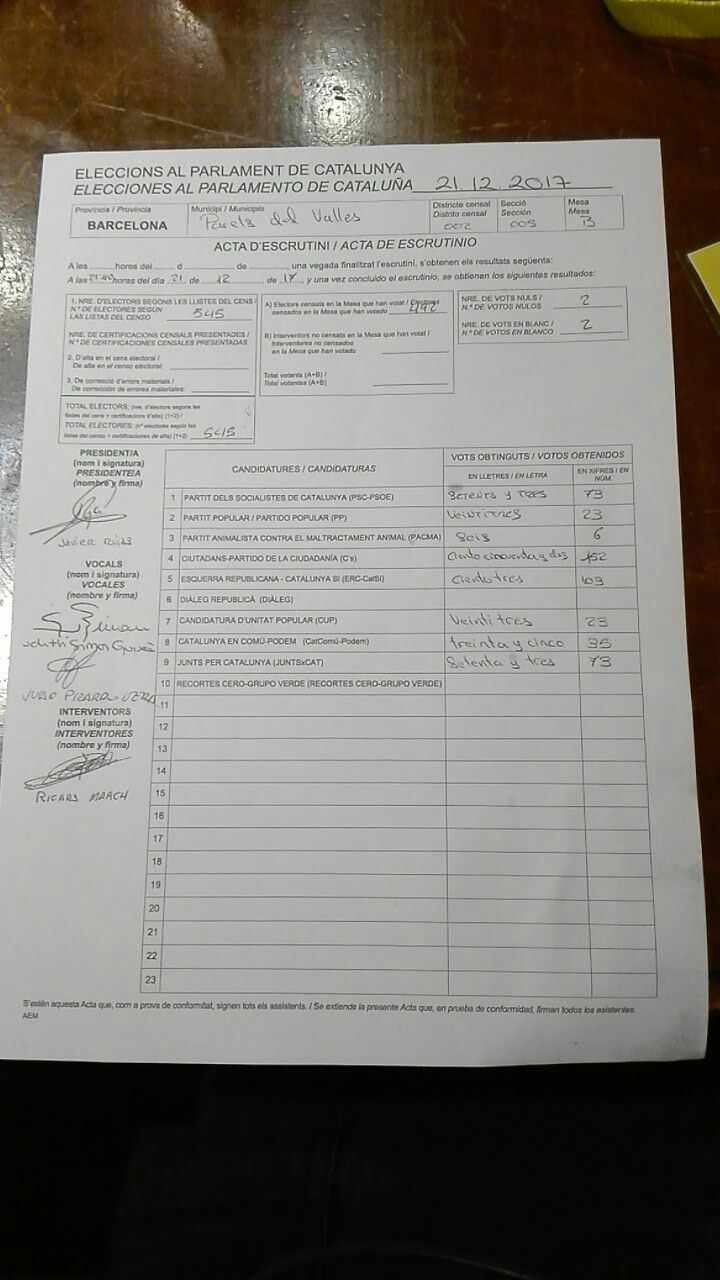 ELECCIONS AL PARLAMENT DE CATALUNYA
ELECCIONES AL PARLAMENTO DE CATALUÑA 21.12.2017
Província / Provincia
BARCELONA
Municipi / Municipio
Parets del Valles
Districte censal
Distrito censal
002
Secció
Sección
005
Mesa
Mesa
B
ACTA D'ESCRUTINI / ACTA DE ESCRUTINIO
A les ........ hores del ....... d ................ de ................, una vegada finalitzat l'escrutini, s'obtenen els resultats següents:
A las horas del día 21 de 12 de 17, y una vez concluido el escrutinio, se obtienen los siguientes resultados:
1. NRE. D'ELECTORS SEGONS LES LLISTES DEL CENS /
N.º DE ELECTORES SEGÚN
LAS LISTAS DEL CENSO 545
NRE. DE CERTIFICACIONS CENSALS PRESENTADES /
N.º DE CERTIFICACIONES CENSALES PRESENTADAS
2. D'alta en el cens electoral /
De alta en el censo electoral:
3. De correcció d'errors materials /
De corrección de errores materiales:
TOTAL ELECTORS: (nre. d'electors segons les
llistes del cens + certificacions d'alta) (1+2) /
TOTAL ELECTORES: (nº electores según las
listas del censo + certificaciones de alta) (1+2) 545
A) Electors censats en la Mesa que han votat / Electores
censados en la Mesa que han votado 492
B) Interventors no censats en la Mesa que han votat /
Interventores no censados
en la Mesa que han votado
Total votants (A+B) /
Total votantes (A+B)
NRE. DE VOTS NULS /
N.º DE VOTOS NULOS 2
NRE. DE VOTS EN BLANC /
N.º DE VOTOS EN BLANCO 2
PRESIDENT/A
(nom i signatura)
PRESIDENTE/A
(nombre y firma)
JAVIER ROJAS
VOCALS
(nom i signatura)
VOCALES
(nombre y firma)
INTERVENTORS
(nom i signatura)
INTERVENTORES
(nombre y firma)
RICARD MARCH
CANDIDATURES / CANDIDATURAS
VOTS OBTINGUTS / VOTOS OBTENIDOS
EN LLETRES / EN LETRA
EN XIFRES / EN NÚM.
1 PARTIT DELS SOCIALISTES DE CATALUNYA (PSC-PSOE) Setenta y tres 73
2 PARTIT POPULAR / PARTIDO POPULAR (PP) Veintitres 23
3 PARTIT ANIMALISTA CONTRA EL MALTRACTAMENT ANIMAL (PACMA) Seis 6
4 CIUTADANS-PARTIDO DE LA CIUDADANÍA (C's) Ciento cincuenta y dos 152
5 ESQUERRA REPUBLICANA - CATALUNYA SÍ (ERC-CatSí) Ciento tres 103
6 DIÀLEG REPUBLICÀ (DIÀLEG)
7 CANDIDATURA D'UNITAT POPULAR (CUP) Veinti tres 23
8 CATALUNYA EN COMÚ-PODEM (CatComú-Podem) treinta y cinco 35
9 JUNTS PER CATALUNYA (JUNTSxCAT) Setenta y tres 73
10 RECORTES CERO-GRUPO VERDE (RECORTES CERO-GRUPO VERDE)
11
12
13
14
15
16
17
18
19
20
21
22
23
S'estén aquesta Acta que, com a prova de conformitat, signen tots els assistents. / Se extiende la presente Acta que, en prueba de conformidad, firman todos los asistentes.
AEM